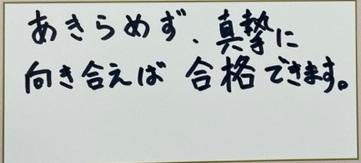 あきらめず、真摯に
向き合えば 合格できます。